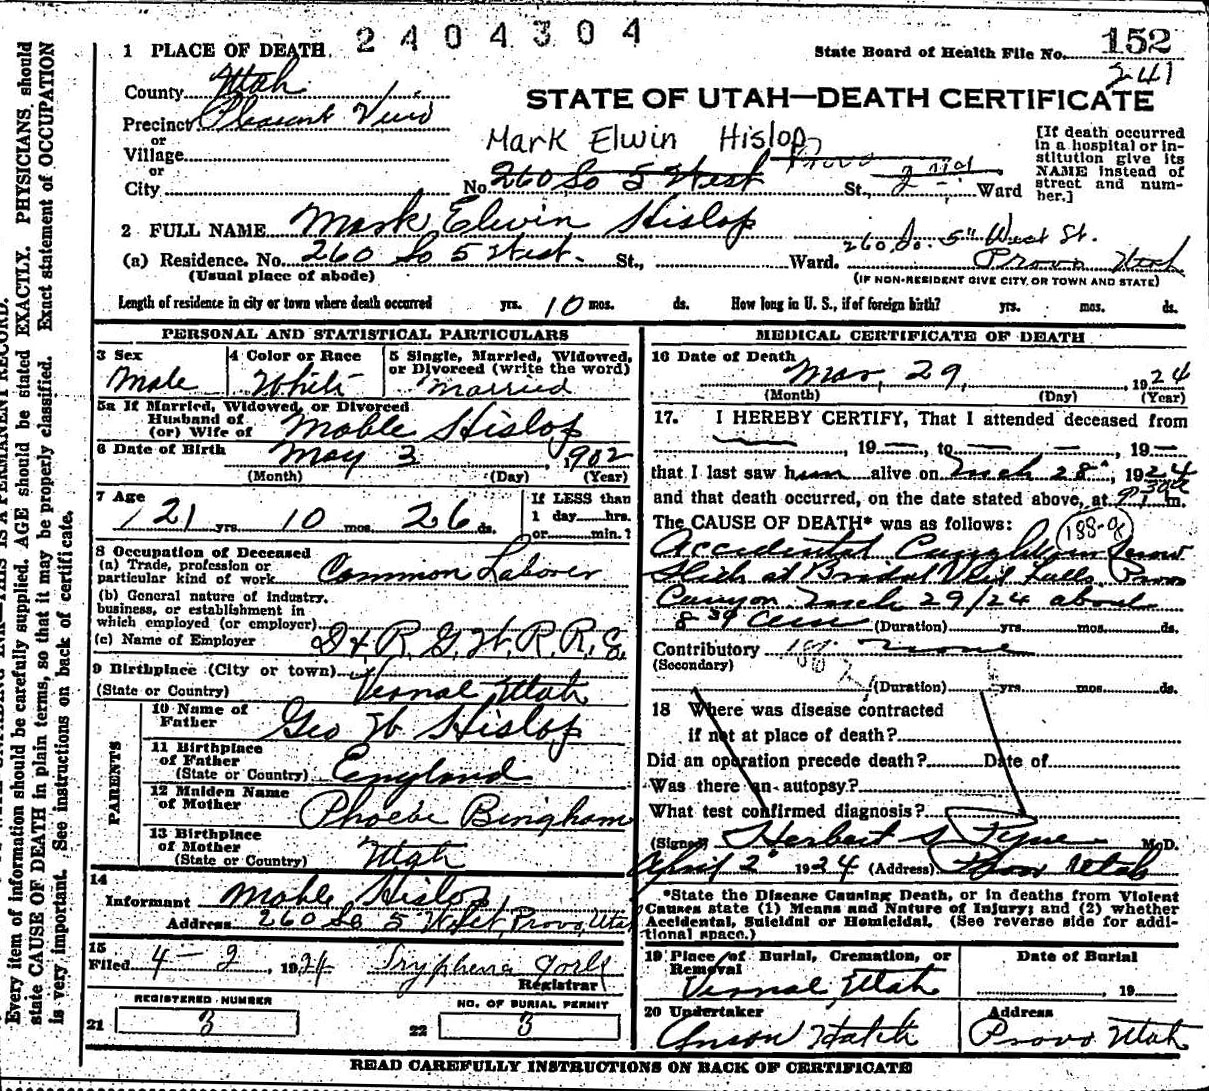 2404304
1 PLACE OF DEATH
State Board of Health File No. 152
241
County Utah
STATE OF UTAH—DEATH CERTIFICATE
Precinct Pleasant View
or
Village
or
City
Mark Elwin Hislop
No 260 So 5 West Provo St., 2nd Ward
[If death occurred in a hospital or institution give its NAME instead of street and number.]
2 FULL NAME Mark Elwin Hislop
(a) Residence. No. 260 So 5 West. St., Ward. 260 So. 5" West St. Provo Utah
(Usual place of abode)
(IF NON-RESIDENT GIVE CITY, OR TOWN AND STATE)
Length of residence in city or town where death occurred yrs. 10 mos. ds. How long in U. S., if of foreign birth? yrs. mos. ds.
PERSONAL AND STATISTICAL PARTICULARS
3 Sex Male
4 Color or Race White
5 Single, Married, Widowed, or Divorced (write the word) Married
5a If Married, Widowed, or Divorced
Husband of
(or) Wife of Mable Hislop
6 Date of Birth May 3, 1902
(Month) (Day) (Year)
7 Age 21 yrs. 10 mos. 26 ds.
If LESS than
1 day hrs.
or min.?
8 Occupation of Deceased
(a) Trade, profession or
particular kind of work Common Laborer
(b) General nature of Industry,
business, or establishment in
which employed (or employer)
(c) Name of Employer D & R. G. W. R. R. Co.
9 Birthplace (City or town)
(State or Country) Vernal Utah
PARENTS
10 Name of
Father Geo W Hislop
11 Birthplace
of Father
(State or Country) England
12 Maiden Name
of Mother Phoebe Bingham
13 Birthplace
of Mother
(State or Country) Utah
14
Informant Mable Hislop
Address 260 So 5 West, Provo, Utah
15
Filed 4-2, 1924 Tryphena
Registrar
REGISTERED NUMBER
21 3
NO. OF BURIAL PERMIT
22 3
MEDICAL CERTIFICATE OF DEATH
16 Date of Death Mar, 29, 1924
(Month) (Day) (Year)
17. I HEREBY CERTIFY, That I attended deceased from
— , 19—, to — — , 19—.
that I last saw him alive on Mch 28", 1924
and that death occurred, on the date stated above, at m.
The CAUSE OF DEATH* was as follows:
188-a
Accidental Caught in Snow
Slide at Bridal Veil Falls, Provo
Canyon. Mch 29/24 about
8 30 am (Duration) yrs. mos. ds.
Contributory None
(Secondary)
(Duration) yrs. mos. ds.
18 Where was disease contracted
if not at place of death?
Did an operation precede death? Date of
Was there an autopsy?
What test confirmed diagnosis?
(Signed) Herbert S Pyne M.D.
April 2" 1924 (Address) Provo Utah
*State the Disease Causing Death, or in deaths from Violent
Causes state (1) Means and Nature of Injury; and (2) whether
Accidental, Suicidal or Homicidal. (See reverse side for additional space.)
19 Place of Burial, Cremation, or
Removal Vernal, Utah
Date of Burial
, 19
20 Undertaker
Anson Hatch
Address
Provo Utah
READ CAREFULLY INSTRUCTIONS ON BACK OF CERTIFICATE
THIS IS A PERMANENT RECORD.
Every item of information should be carefully supplied. AGE should be stated EXACTLY. PHYSICIANS should
state CAUSE OF DEATH in plain terms, so that it may be properly classified. Exact statement of OCCUPATION
is very important. See instructions on back of certificate.